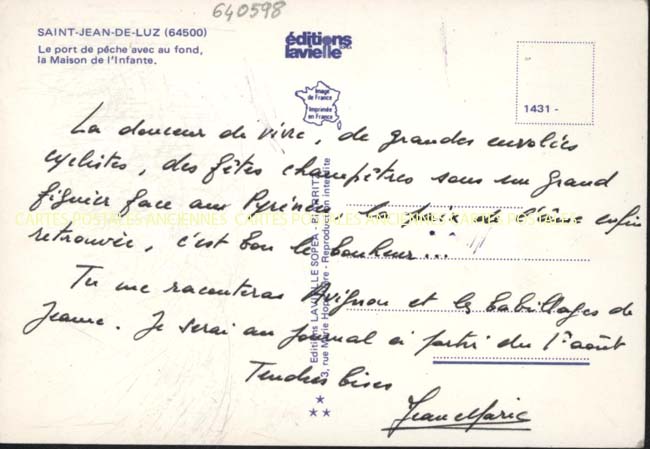 640598
SAINT-JEAN-DE-LUZ (64500)
Le port de pêche avec au fond,
la Maison de l'Infante.
éditions
lavielle
Image
de France
Imprimée
en France
1431 -
La douceur de vivre, de grandes envolées
cyclistes, des fêtes champêtres sous un grand
figuier face aux Pyrénées, la paix de l'âme enfin
retrouvée, c'est bon le bonheur...
Tu me raconteras Avignon et les babillages de
Jeanne. Je serai au journal à partir du 1er août
Tendres bises
Jean Marie
CARTES POSTALES ANCIENNES CARTES POSTALES ANCIENNES CARTES POSTALES ANCIENNES
Editions LAVIELLE SOPEA - BIARRITZ
3, rue Marie Hope - Reproduction interdite